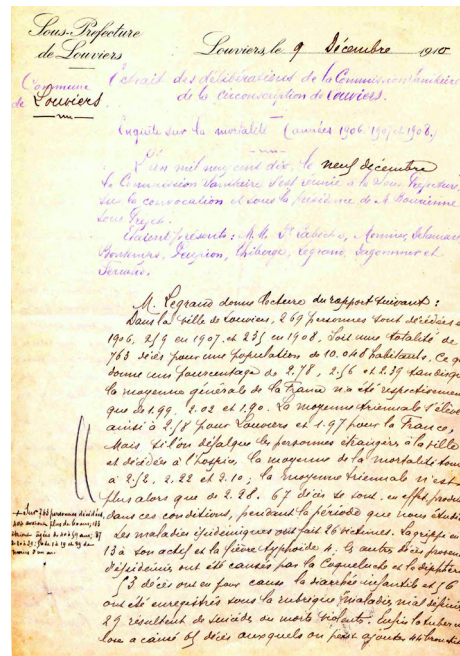 Sous-Préfecture
de Louviers
Louviers, le 9 Décembre 1910
Commune
de Louviers
Extrait des délibérations de la Commission Sanitaire
de la circonscription de Louviers.
Enquête sur la mortalité (années 1906, 1907 et 1908.)
L'an mil neuf cent dix, le neuf décembre
la Commission Sanitaire s'est réunie à la Sous-Préfecture,
sur la convocation et sous la présidence de M.
Sous-Préfet.
Etaient présents : M.M.
Legrand, et
M. Legrand donne lecture du rapport suivant :
Dans la ville de Louviers, 269 personnes sont décédées en
1906, 259 en 1907, et 235 en 1908. Soit une totalité de
763 décès pour une population de 10.048 habitants. Ce qui
donne une pourcentage de 2.78, 2.56 et 2.39 tandis que
la moyenne générale de la France n'a été respectivement
que de 1.99. 2.02 et 1.90. La moyenne triennale s'élève
ainsi à 2.58 pour Louviers et 1.97 pour la France,
Mais si l'on défalque les personnes étrangères à la ville
et décédées à l'hospice, la moyenne de la mortalité tombe
à 2.52. 2.22 et 2.10; la moyenne triennale n'est
plus alors que de 2.28. 67 décès se sont, en effet, produits
dans ces conditions, pendant la période que nous étudions
Les maladies épidémiques ont fait 26 victimes. La grippe en a
13 à son actif et la fièvre typhoïde 4. les autres décès
ont été causés par la Coqueluche et la diphtérie
53 décès ont eu pour cause la diarrhée infantile et 56
ont été enregistrés sous la rubrique maladies mal définies
29 résultent de suicides ou morts violentes. Enfin la tubercu
lose a causé 65 décès auxquels on peut ajouter 44
Sur 763 personnes décédées,
avaient plus de 60 ans;